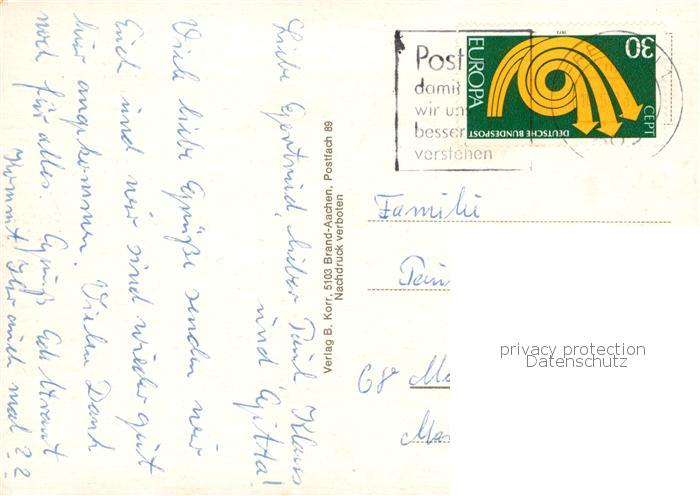 Liebe Gertrud, lieber Paul, Klaus
und Gitta!
Viele liebe Grüße senden wir
Euch und wir sind wieder gut
hier angekommen. Vielen Dank
noch für alles. Gruß
Kommt Ihr auch mal??
Verlag B. Korr, 5103 Brand-Aachen, Postfach 89
Nachdruck verboten
Post
damit
wir un
besser
verstehen
EUROPA
CEPT
30
DEUTSCHE BUNDESPOST
1973
Familie
68
privacy protection
Datenschutz